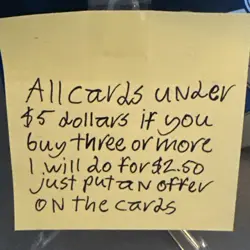 All cards under
$5 dollars if you
buy three or more
I will do for $2.50
just put an offer
on the cards